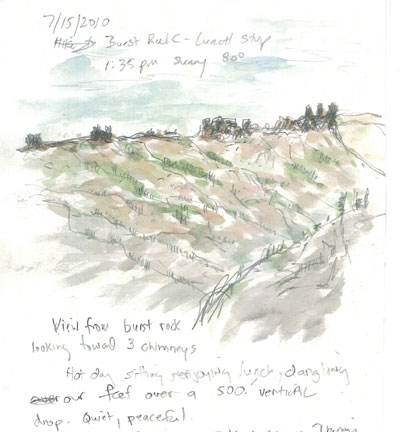 7/15/2010
Hike to Burst Rock - Lunch Stop
1:35 pm sunny 80°
View from burst rock
looking toward 3 chimneys
Hot day sitting enjoying lunch, dangling
our feet over a 500' vertical
drop. Quiet, peaceful.